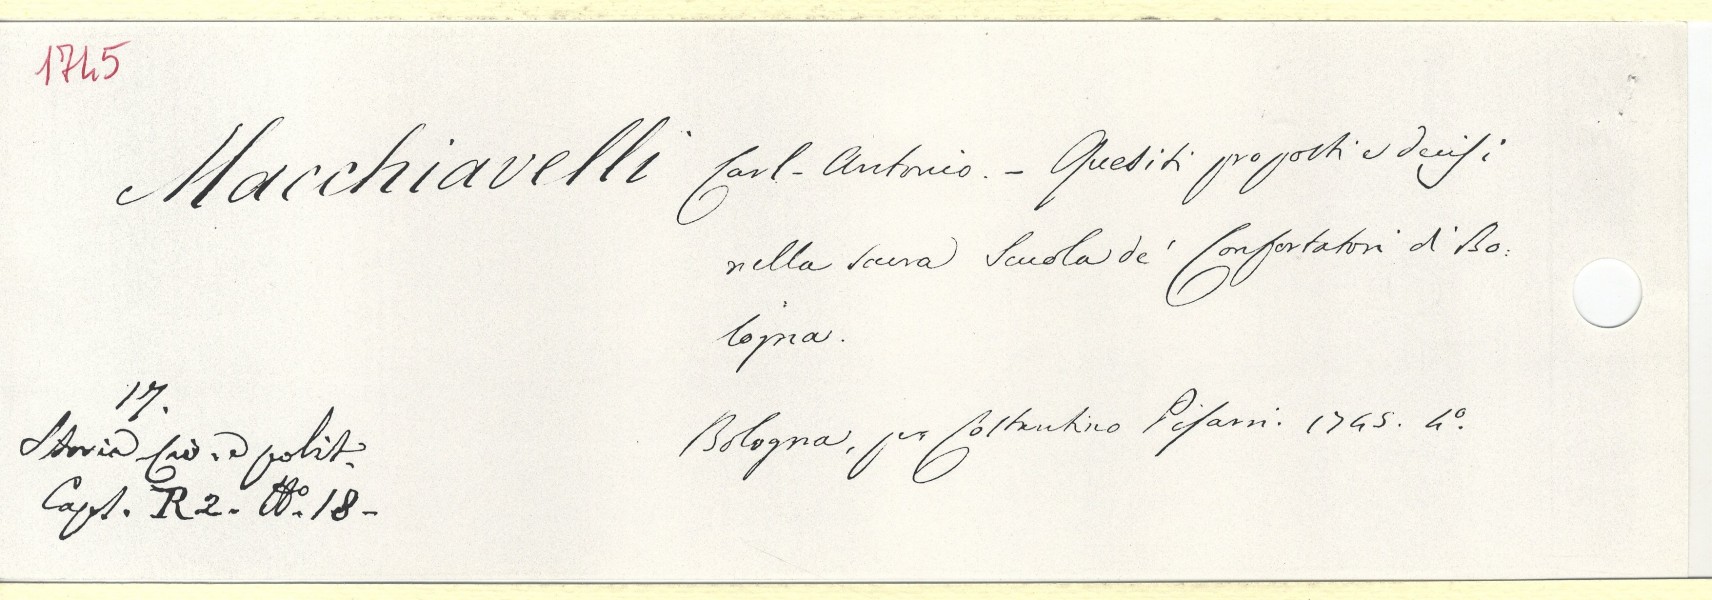 1745
Macchiavelli Carl-Antonio. - Quesiti proposti e decisi
nella sacra Scuola de' Confortatori di Bo:
logna.
Bologna, per Costantino Pisarri. 1745. 4°.
17.
Storia civ. e polit.
Caps. R2. N°. 18-